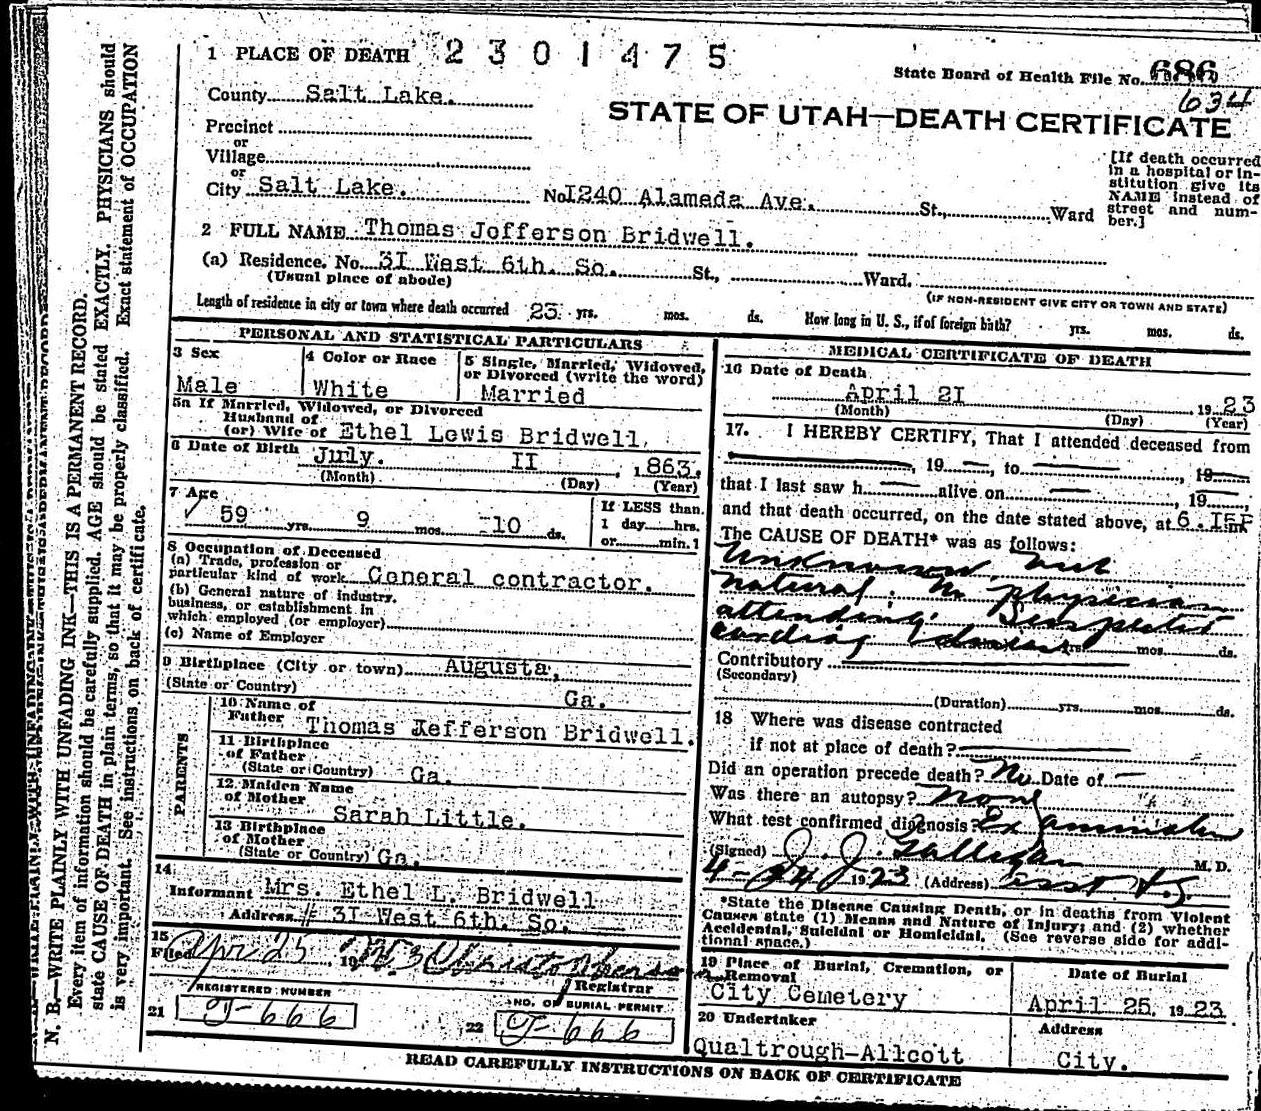 1 PLACE OF DEATH 2301475
State Board of Health File No. 686
634
County Salt Lake.
STATE OF UTAH—DEATH CERTIFICATE
Precinct
or
Village
or
City Salt Lake. No. I240 Alameda Ave. St., Ward
[If death occurred in a hospital or institution give its NAME instead of street and number.]
2 FULL NAME Thomas Jofferson Bridwell.
(a) Residence. No. 3I West 6th. So. St., Ward.
(Usual place of abode) (IF NON-RESIDENT GIVE CITY OR TOWN AND STATE)
Length of residence in city or town where death occurred 23 yrs. mos. ds. How long in U. S., if of foreign birth? yrs. mos. ds.
PERSONAL AND STATISTICAL PARTICULARS
3 Sex
Male
4 Color or Race
White
5 Single, Married, Widowed,
or Divorced (write the word)
Married
5a If Married, Widowed, or Divorced
Husband of
(or) Wife of Ethel Lewis Bridwell,
6 Date of Birth July. II , 1863.
(Month) (Day) (Year)
7 Age
59 yrs. 9 mos. 10 ds.
If LESS than
1 day hrs.
or min.1
8 Occupation of Deceased
(a) Trade, profession or
particular kind of work General contractor.
(b) General nature of industry.
business, or establishment in
which employed (or employer)
(c) Name of Employer
9 Birthplace (City or town) Augusta,
(State or Country) Ga.
PARENTS
10 Name of
Father Thomas Jefferson Bridwell.
11 Birthplace
of Father
(State or Country) Ga.
12 Maiden Name
of Mother
Sarah Little.
13 Birthplace
of Mother
(State or Country) Ga.
14
Informant Mrs. Ethel L. Bridwell
Address # 3I West 6th. So.
15
Filed Apr 25 1923 Christopherson
Registrar
REGISTERED NUMBER
21 J-666
NO. OF BURIAL PERMIT
22 J-666
MEDICAL CERTIFICATE OF DEATH
16 Date of Death
April 2I 1923
(Month) (Day) (Year)
17. I HEREBY CERTIFY, That I attended deceased from
, 19—, to , 19
that I last saw h alive on , 19
and that death occurred, on the date stated above, at 6.
The CAUSE OF DEATH* was as follows:
Unknown but
natural. No physician
attending. Suspected
cardiac disease yrs. mos. ds.
Contributory
(Secondary)
(Duration) yrs. mos. ds.
18 Where was disease contracted
if not at place of death?
Did an operation precede death? No Date of —
Was there an autopsy? None
What test confirmed diagnosis? Examination
(Signed) J. J. Galligan M. D.
4-24 1923 (Address)
*State the Disease Causing Death, or in deaths from Violent
Causes state (1) Means and Nature of Injury; and (2) whether
Accidental, Suicidal or Homicidal. (See reverse side for addi-
tional space.)
19 Place of Burial, Cremation, or
Removal
City Cemetery
Date of Burial
April 25, 1923
20 Undertaker
Qualtrough-Allcott
Address
City.
READ CAREFULLY INSTRUCTIONS ON BACK OF CERTIFICATE
N. B.—WRITE PLAINLY WITH UNFADING INK—THIS IS A PERMANENT RECORD.
Every item of information should be carefully supplied. AGE should be stated EXACTLY. PHYSICIANS should
state CAUSE OF DEATH in plain terms, so that it may be properly classified. Exact statement of OCCUPATION
is very important. See instructions on back of certificate.